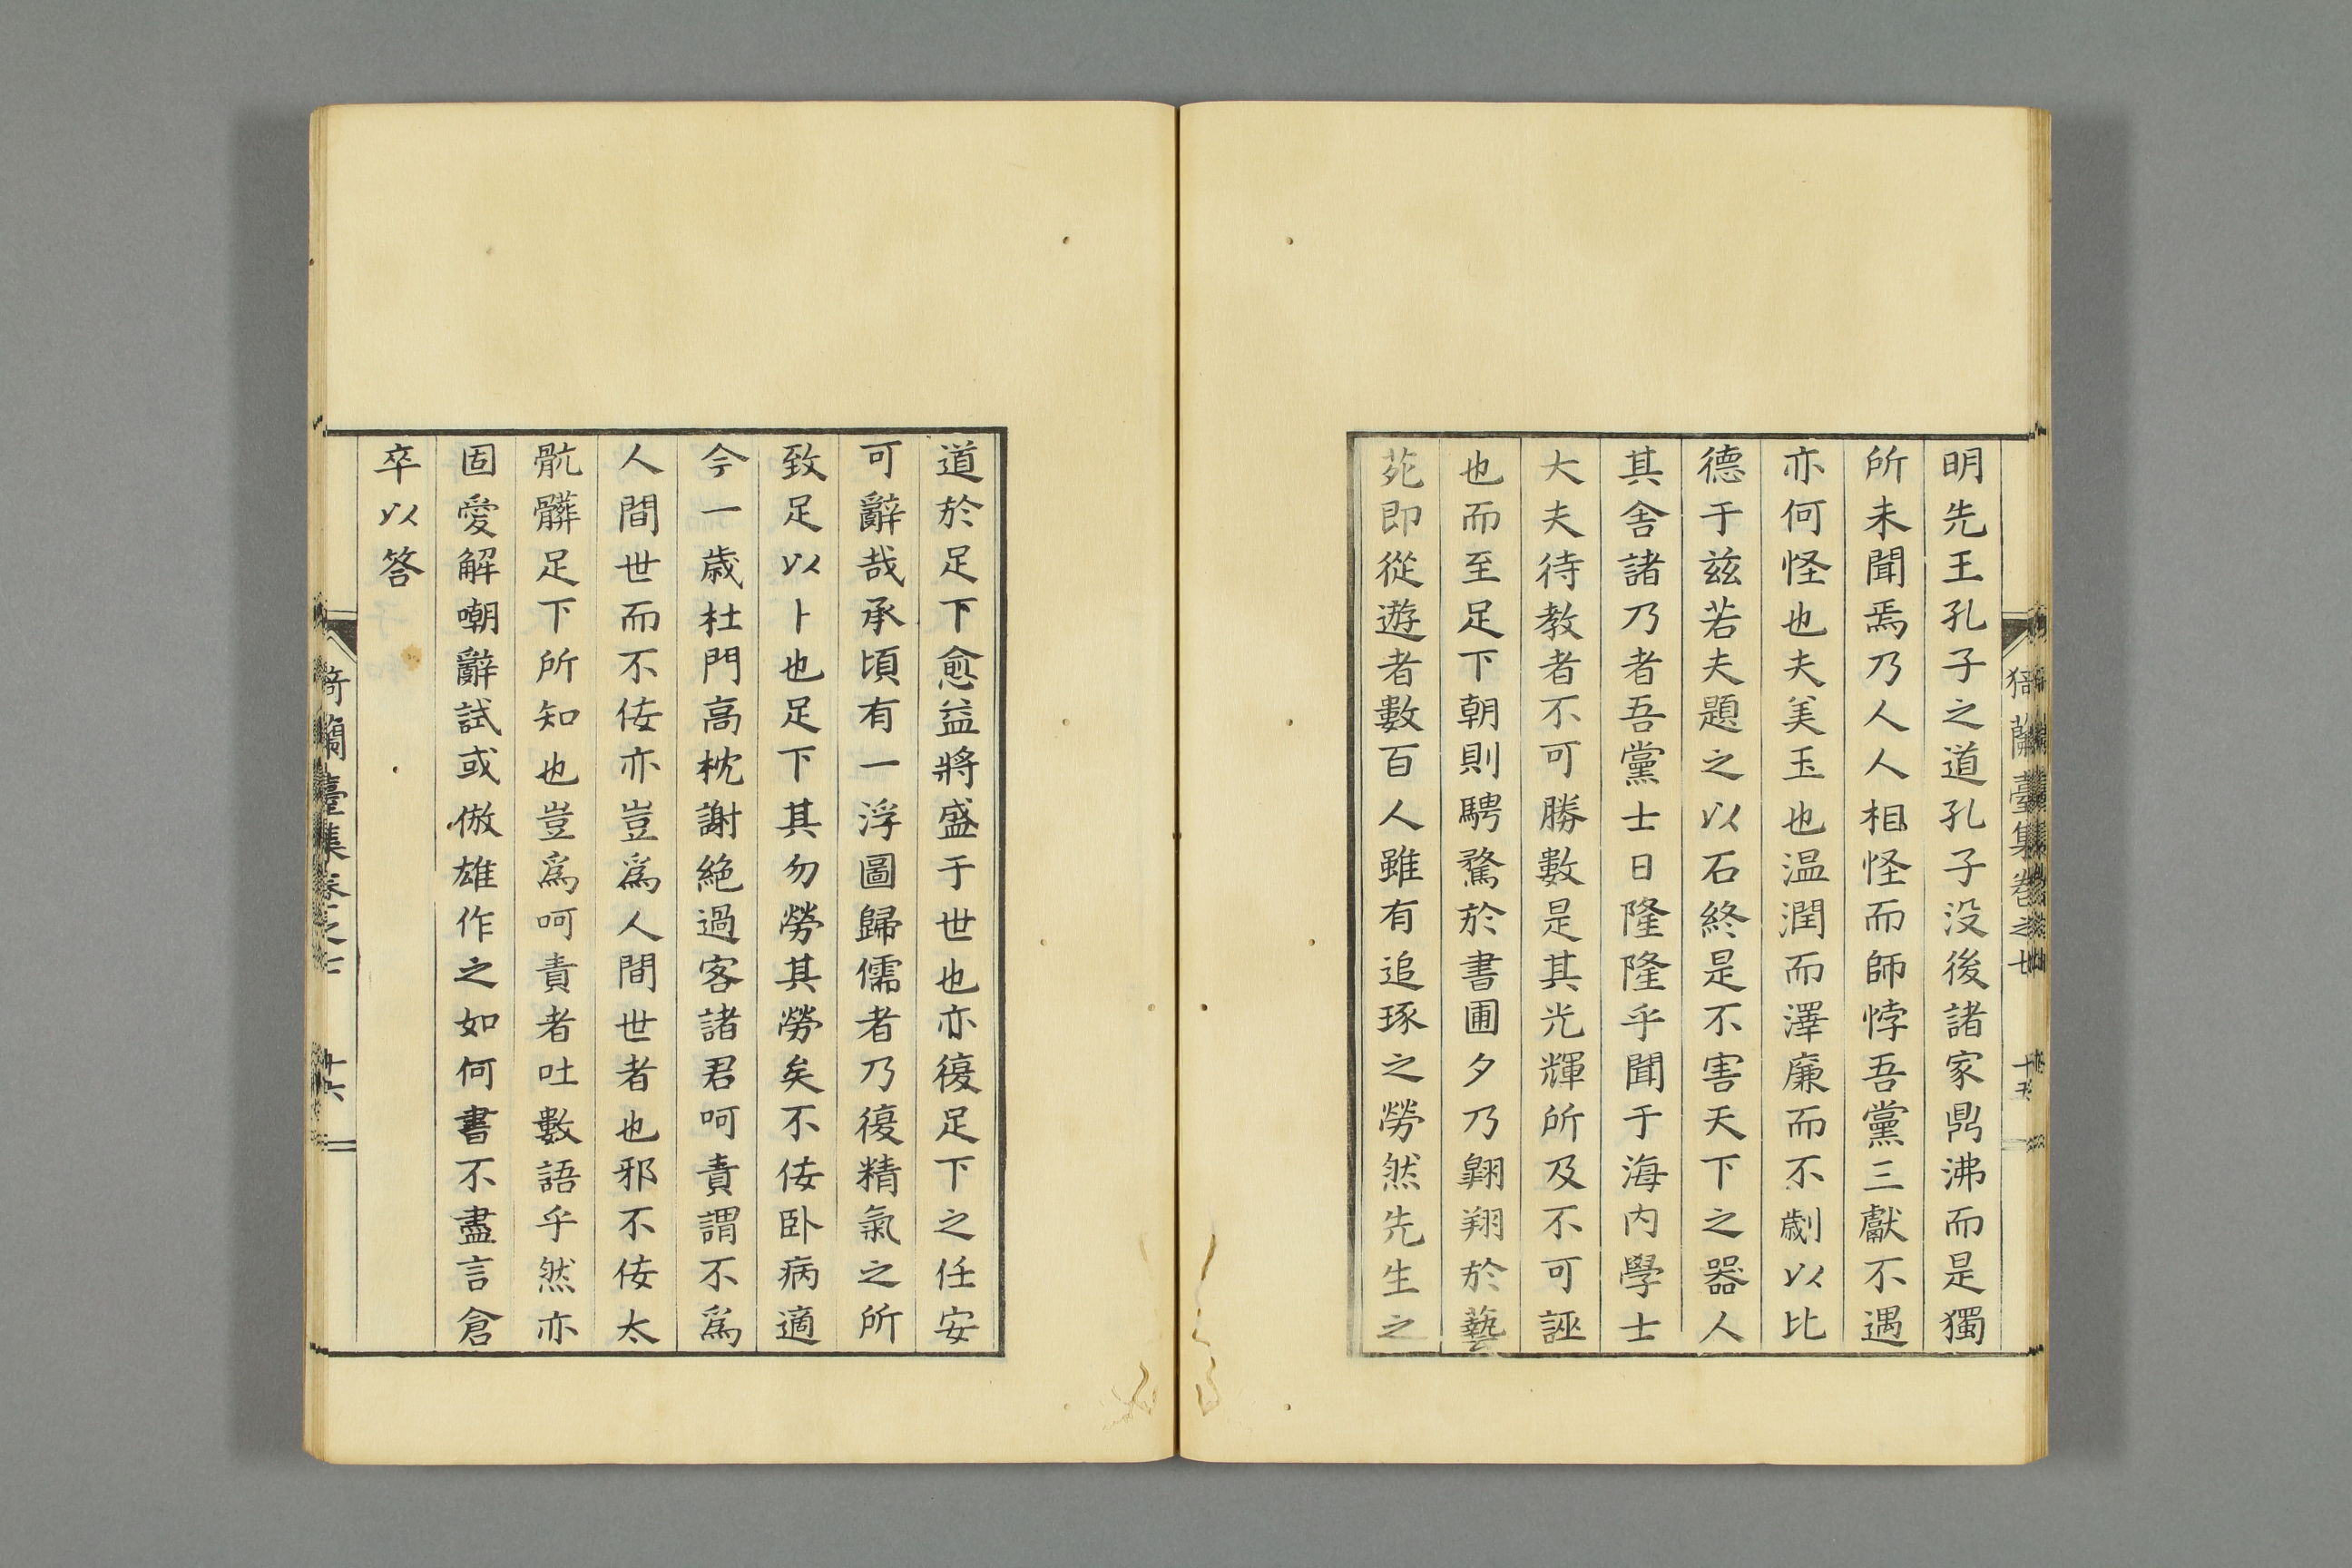 明先王孔子之道孔子没後諸家鼎沸而是獨
所未聞焉乃人人相怪而師悖吾黨三獻不遇
亦何怪也夫美玉也温潤而澤廉而不劌以比
德于兹若夫題之以石終是不害天下之器人
其舍諸乃者吾黨士日隆隆乎聞于海内學士
大夫待教者不可勝數是其光輝所及不可誣
也而至足下朝則騁騖於書圃夕乃翺翔於藝
苑即從遊者數百人雖有追琢之勞然先生之
道於足下愈益將盛于世也亦復足下之任安
可辭哉承頃有一浮圖歸儒者乃復精氣之所
致足以卜也足下其勿勞其勞矣不佞卧病適
今一歳杜門高枕謝絶過客諸君呵責謂不爲
人間世而不佞亦豈爲人間世者也邪不佞太
骯髒足下所知也豈爲呵責者吐數語乎然亦
固愛解嘲辭試或倣雄作之如何書不盡言倉
卒以答
蘭臺集卷之七
十六